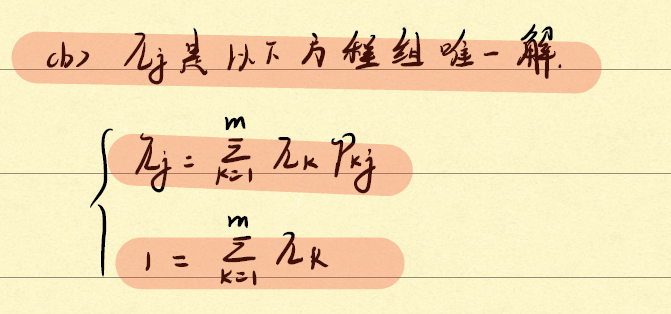 (b) πj 是以下方程组唯一解.
πj = Σ_{k=1}^{m} πk Pkj
1 = Σ_{k=1}^{m} πk